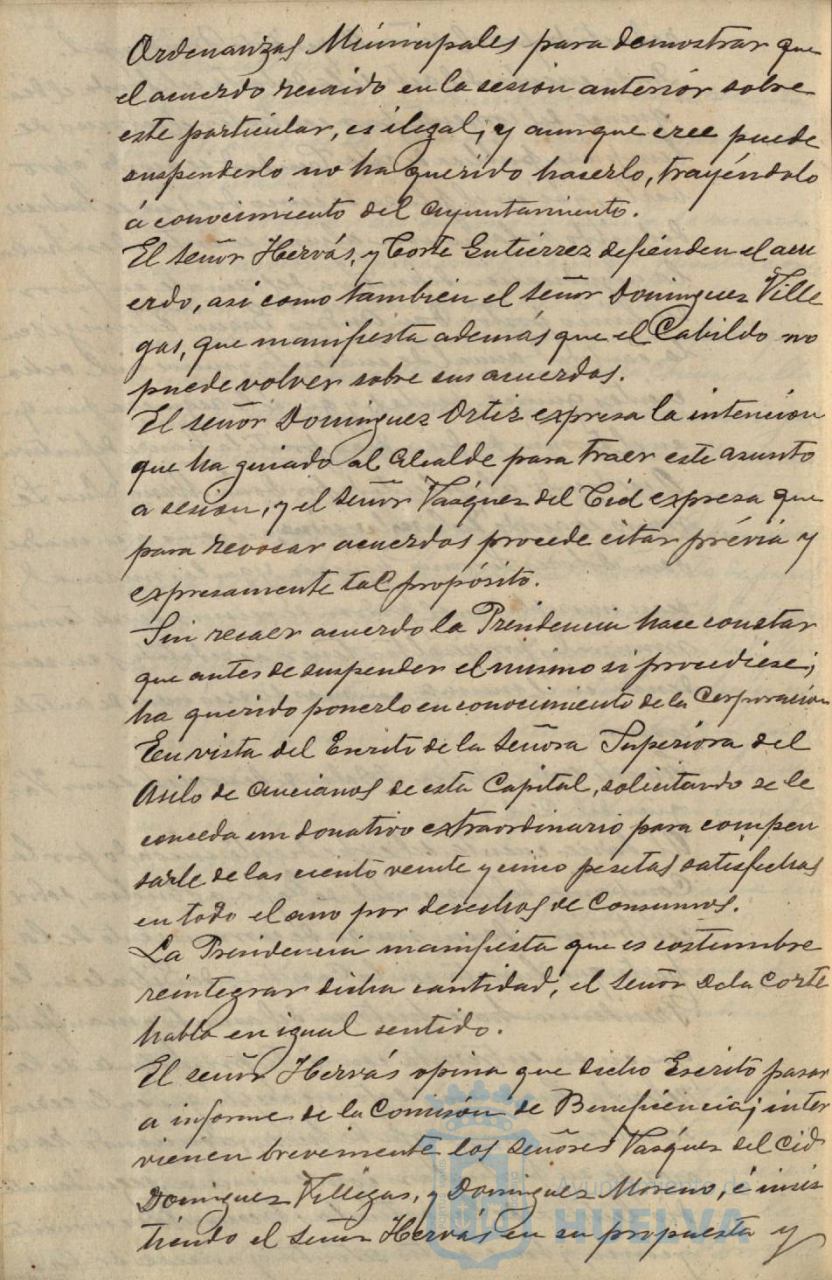 Ordenanzas Municipales para demostrar que
el acuerdo recaido en la sesion anterior sobre
este particular, es ilegal; y aunque cree puede
suspenderlo no ha querido hacerlo, trayéndolo
á conocimiento del Ayuntamiento.
El Señor Hervás, y Corte Gutierrez defienden el acu
erdo, asi como también el Señor Dominguez Ville
gas, que manifiesta además que el Cabildo no
puede volver sobre sus acuerdos.
El señor Dominguez Ortiz expresa la intencion
que ha guiado al Alcalde para traer este asunto
a sesion, y el Señor Vasquez del Cid expresa que
para revocar acuerdos procede citar prévia y
expresamente tal propósito.
Sin recaer acuerdo la Presidencia hace constar
que antes de suspender el mismo si procediese;
ha querido ponerlo en conocimiento de la Corporacion
En vista del Escrito de la Señora Superiora del
Asilo de Ancianos de esta Capital, solicitando se le
conceda un donativo extraordinario para compen
sarle de las ciento veinte y cinco pesetas satisfechas
en todo el año por derechos de Consumos.
La Presidencia manifiesta que es costumbre
reintegrar dicha cantidad, el Señor De la Corte
habla en igual sentido.
El señor Hervás opina que dicho Escrito pasar
a informe de la Comisión de Beneficencia; inter
vienen brevemente los señores Vasquez del Cid
Dominguez Villegas, y Dominguez Moreno, é insis
tiendo el Señor Hervás en su propuesta y
Ayuntamiento de
HUELVA